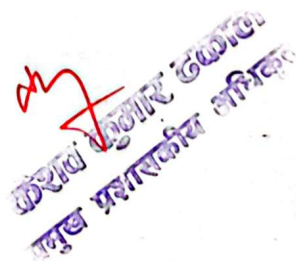 केशव कुमार ढकाल
प्रमुख प्रशासकीय अधिकृत